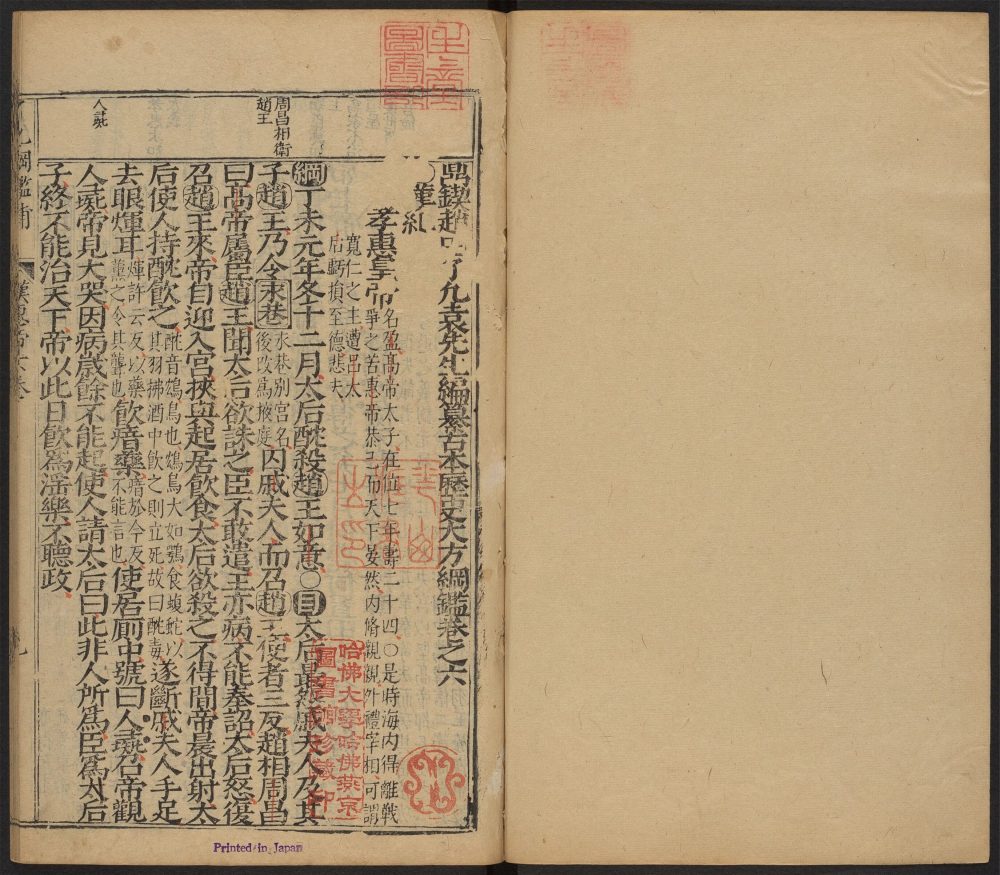 鼎鍥趙田了凡袁先生編纂古本歷史大方綱鑑卷之六
漢紀
孝惠皇帝
名盈高帝太子在位七年壽二十四〇是時海内得離戰
爭之苦惠帝恭己而天下晏然内脩親親外禮宰相可謂
寬仁之主遭呂太
后虧損至德悲夫
綱丁未元年冬十二月太后酖殺趙王如意〇目太后最怨戚夫人及其
子趙王乃令永巷
永巷别宮名
後改爲掖庭
囚戚夫人而召趙王使者三反趙相周昌
曰高帝屬臣趙王聞太后欲誅之臣不敢遣王亦病不能奉詔太后怒復
召趙王來帝自迎入宮挾與起居飲食太后欲殺之不得間帝晨出射太
后使人持酖飲之
酖音鴆鳥也鴆鳥大如鶚食蝮蛇以
其羽拂酒中飲之則立死故曰酖毒
遂斷戚夫人手足
去眼煇耳
煇許云反以藥
薰之令其聾也
飲瘖藥
瘖於今反
不能言也
使居厠中號曰人彘召帝觀
人彘帝見大哭因病歲餘不能起使人請太后曰此非人所爲臣爲太后
子終不能治天下帝以此日飲爲淫樂不聽政
周昌相衛
趙王
人彘
綱鑑補
漢惠帝六卷
哈佛大學哈佛燕京
圖書館珍藏印
Printed in Japan